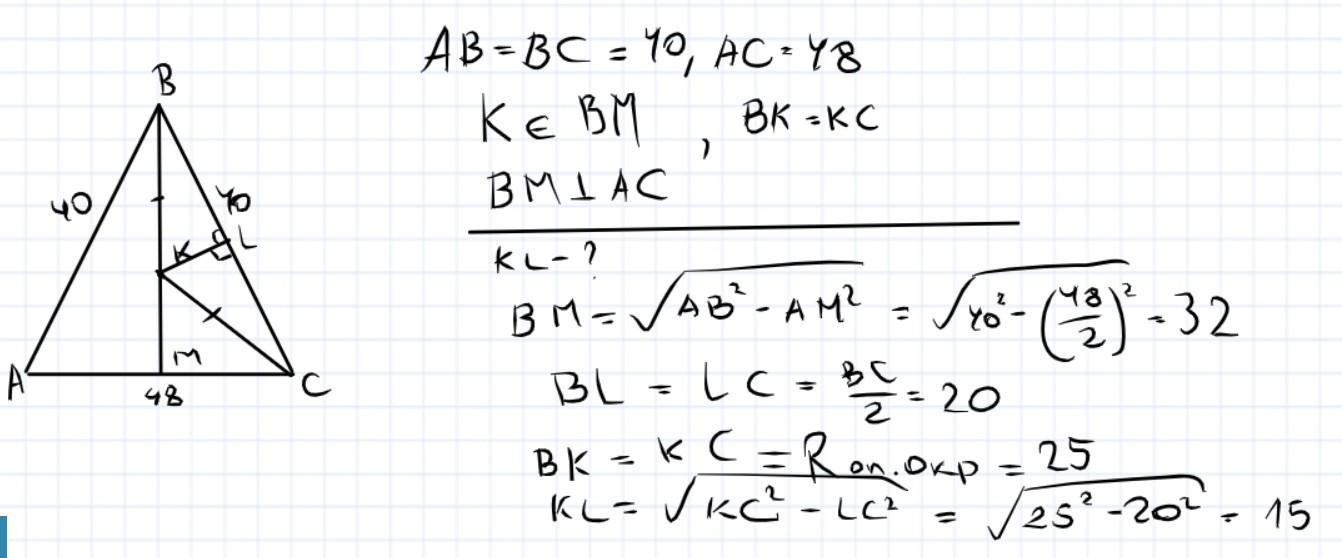 B
40
40
K
L
A
M
48
C
AB = BC = 40, AC = 48
K ∈ BM , BK = KC
BM ⊥ AC
KL - ?
BM = √(AB² - AM²) = √(40² - (48/2)²) = 32
BL = LC = BC/2 = 20
BK = KC = R оп. окр = 25
KL = √(KC² - LC²) = √(25² - 20²) = 15